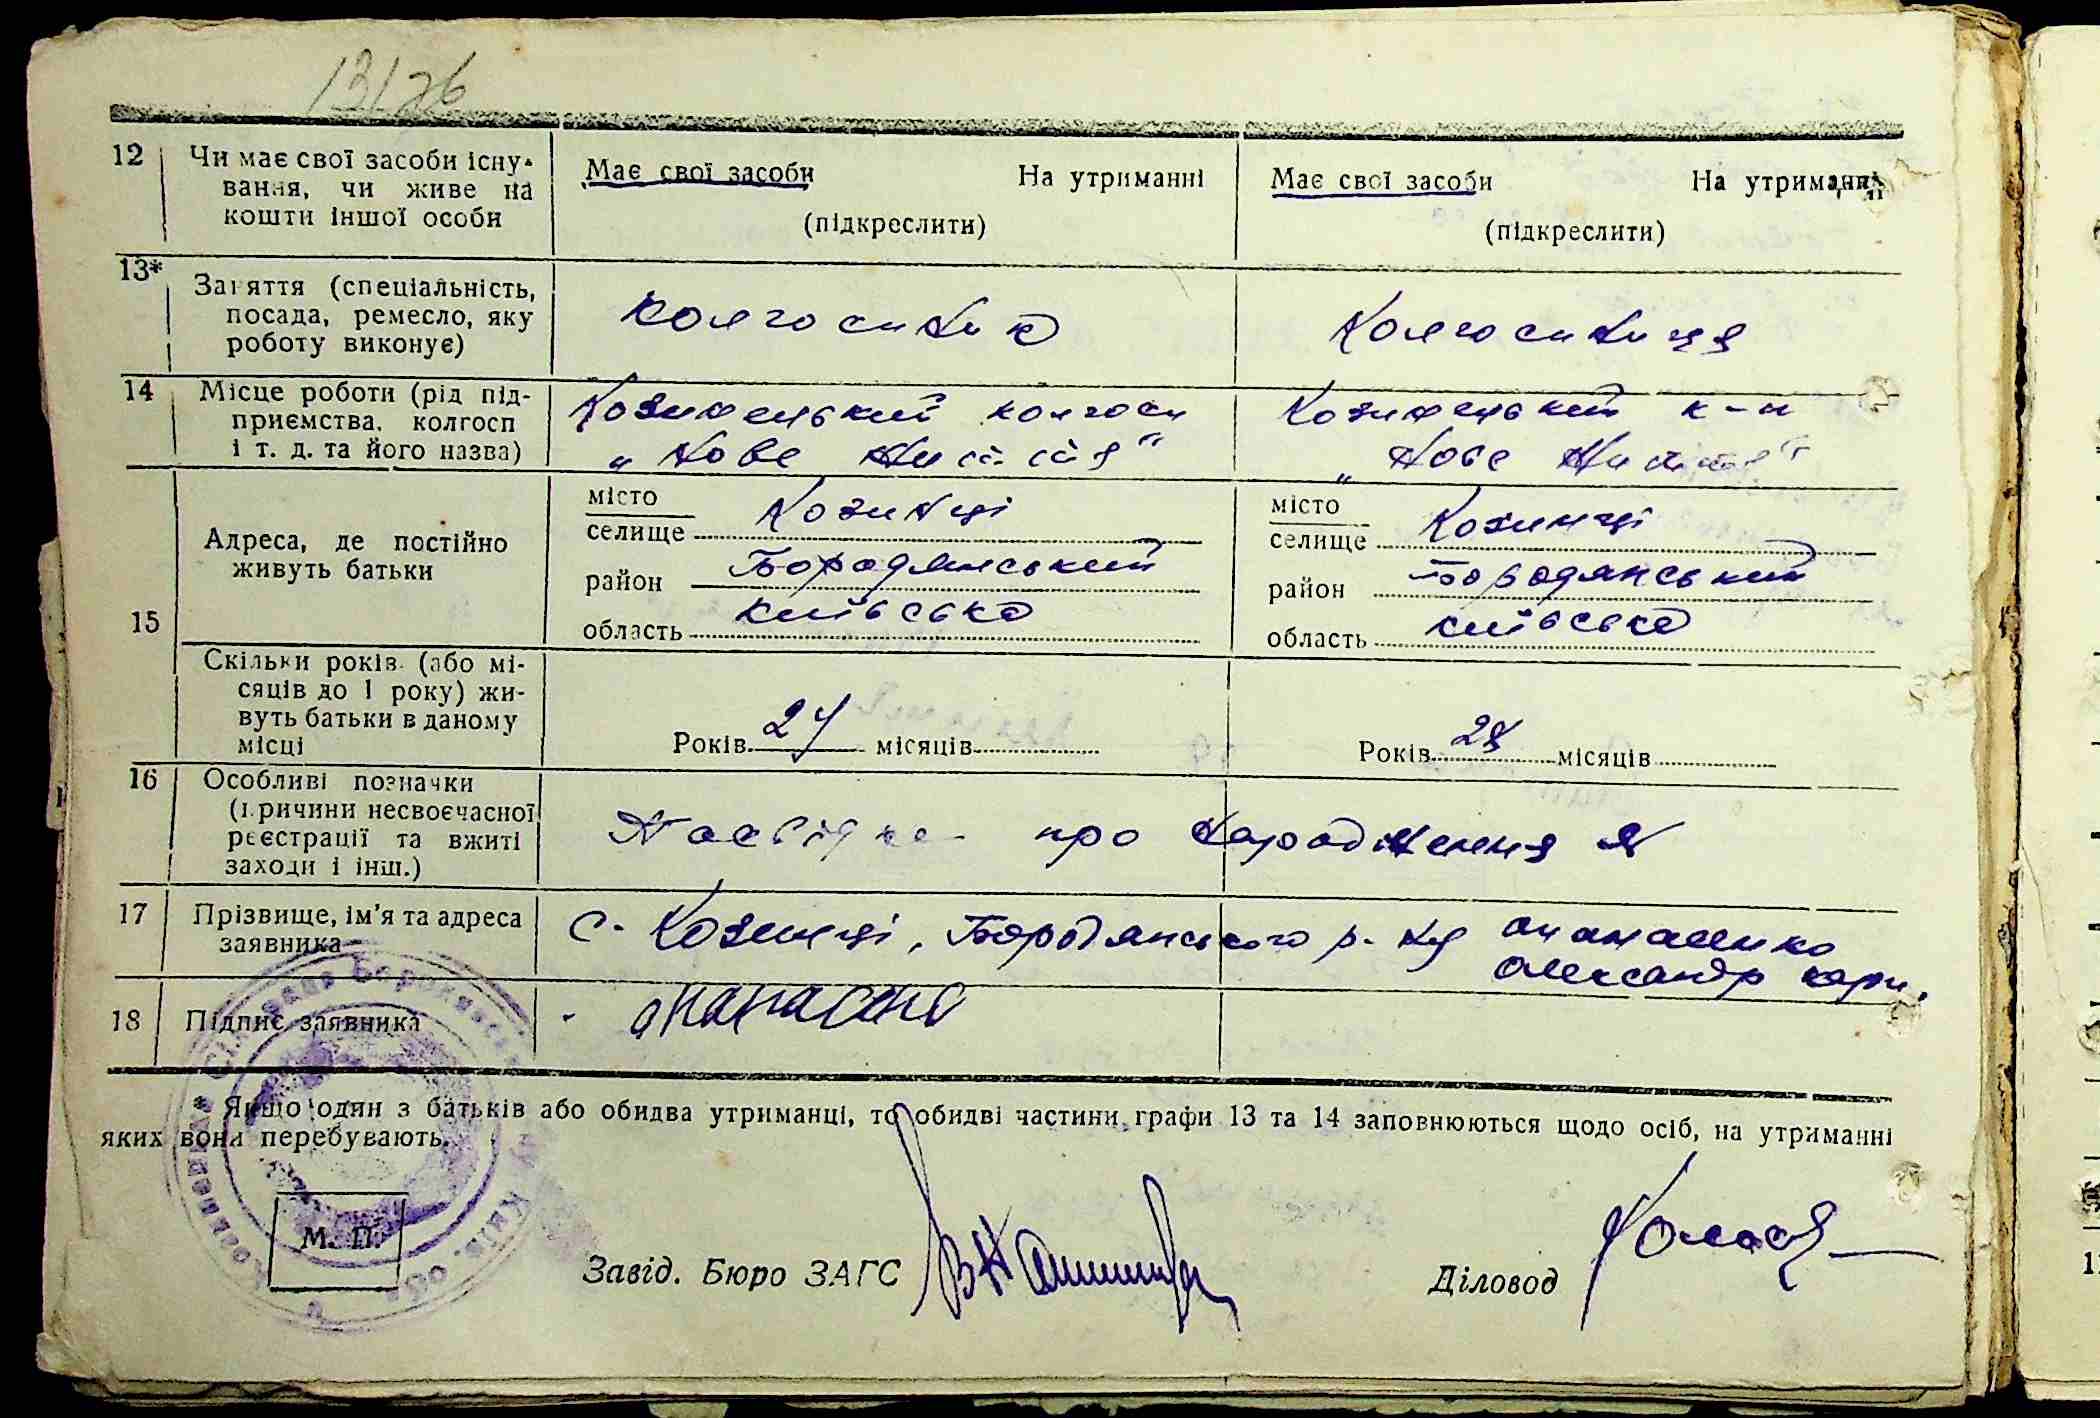 13126
12 Чи має свої засоби існу-
вання, чи живе на
кошти іншої особи
Має свої засоби На утриманні
(підкреслити)
Має свої засоби На утриманні
(підкреслити)
13* Заняття (спеціальність,
посада, ремесло, яку
роботу виконує)
Колгоспник
Колгоспниця
14 Місце роботи (рід під-
приємства, колгосп
і т. д. та його назва)
Козинецький колгосп
„Нове Життя“
Козинецький к-п
„Нове Життя“
15 Адреса, де постійно
живуть батьки
місто
селище Козинці
район Бородянський
область Київська
місто
селище Козинці
район Бородянський
область Київська
Скільки років (або мі-
сяців до 1 року) жи-
вуть батьки в даному
місці
Років 24 місяців
Років 28 місяців
16 Особливі позначки
(причини несвоєчасної
реєстрації та вжиті
заходи і інш.)
про народження №
17 Прізвище, ім’я та адреса
заявника
с. Козинці, Бородянського р-ну Опанасенко
Олександр
18 Підпис заявника
* Якщо один з батьків або обидва утриманці, то обидві частини графи 13 та 14 заповнюються щодо осіб, на утриманні
яких вони перебувають.
М. П.
Завід. Бюро ЗАГС
Діловод